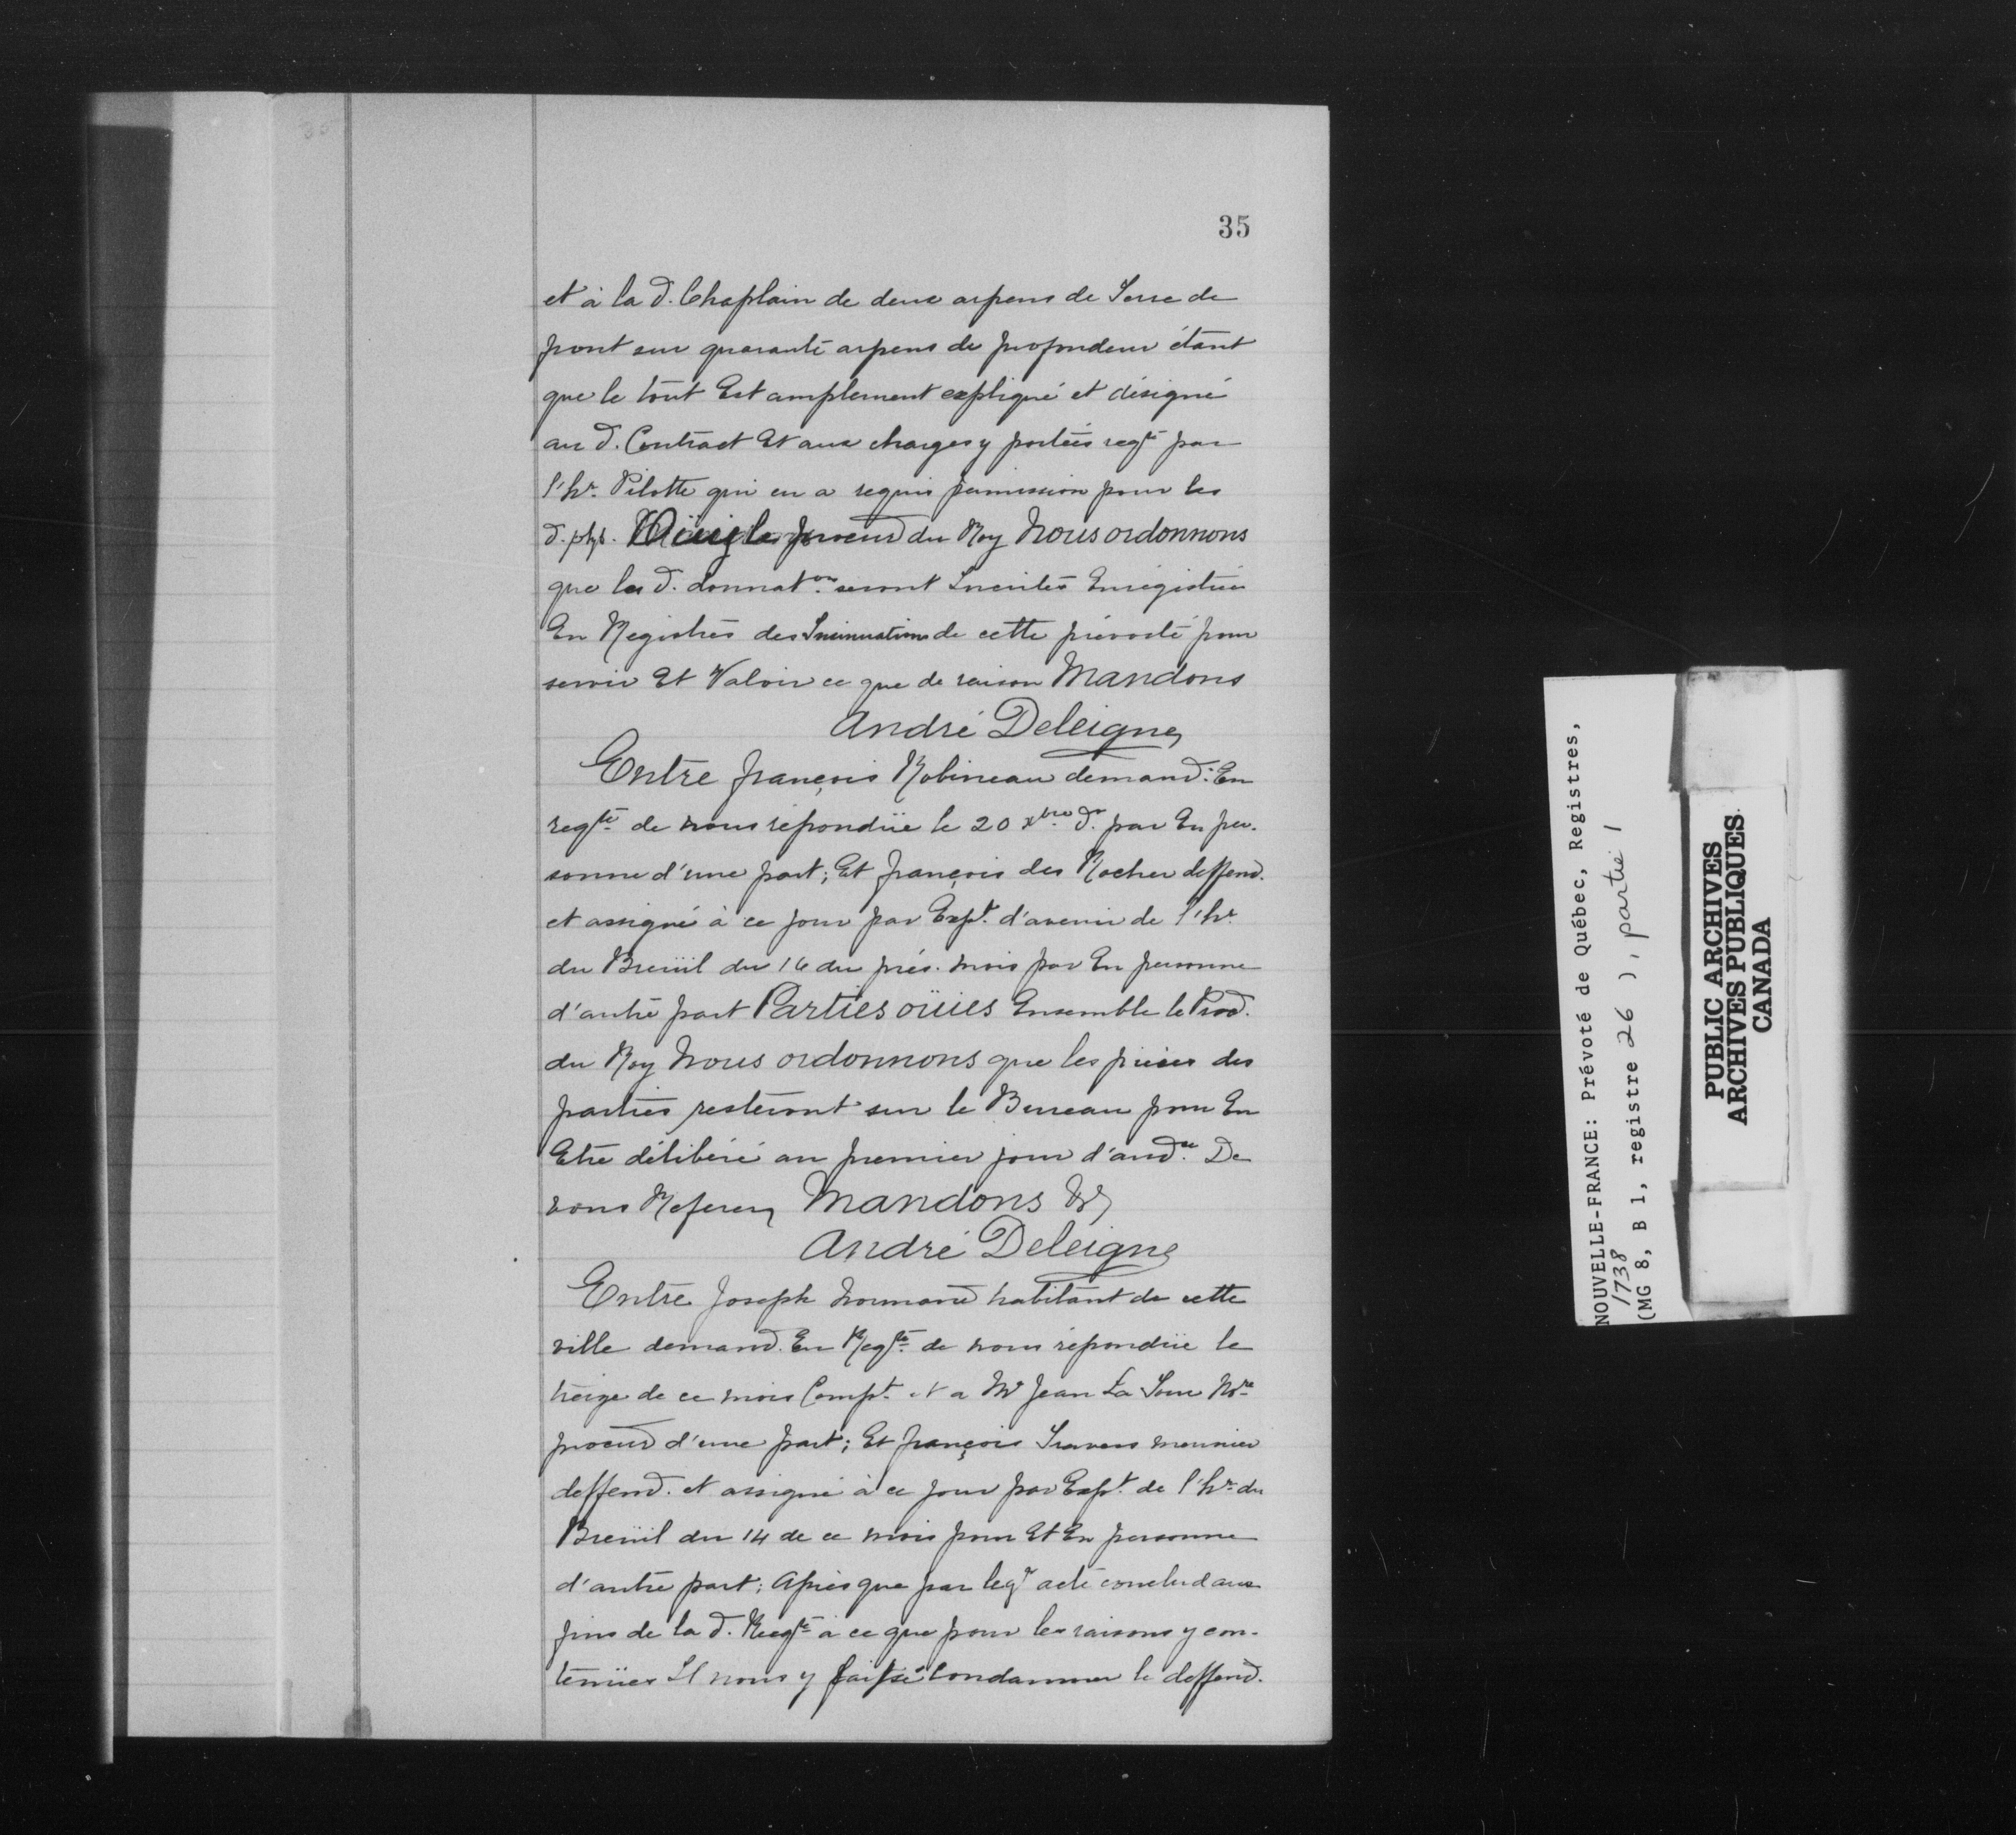 35
et à la d. Chaplain de deux arpens de Terre de
front sur quarante arpens de profondeur étant
que le tout Est amplement expliqué et désigné
au d. Contract Et aux charges y portées reqte par
l'hr. Pilotte qui en a requis permission pour les
d. pts. Oüi le procur du Roy Nous ordonnons
que les d. donnaton seront Inscrites Enregistrées
En Registres des Insinuations de cette prévosté pour
servir Et Valoir ce que de raison Mandons
André Deleigne
Entre françois Robineau demand. En
reqte de nous répondüe le 20 xbre dr par En per-
sonne d'une part; Et françois des Rocher deffend.
et assigné à ce jour par Expt. d'avenir de l'hr
du Breüil du 16 du prés. mois par En personne
d'autre part Parties oüies Ensemble le Prod.
du Roy Nous ordonnons que les pièces des
parties resteront sur le Bureau pour En
Etre délibéré au premier jour d'audce De
vous Referer Mandons &
André Deleigne
Entre Joseph Normand habitant de cette
ville demand. En Reqte de nous répondüe le
treize de ce mois Compt. et a Mr Jean La Tour Nore
procur d'une part; Et françois Travers meunier
deffend. et assigné à ce jour par Expt. de l'hr du
Breüil du 14 de ce mois pour Et En personne
d'autre part; Après que par leqr acté conclud aux
fins de la d. Reqte à ce que pour les raisons y con-
tenües Il nous y Condamner le deffend.
NOUVELLE-FRANCE: Prévoté de Québec, Registres,
1738
(MG 8, B 1, registre 26 ), partie 1
PUBLIC ARCHIVES
ARCHIVES PUBLIQUES
CANADA